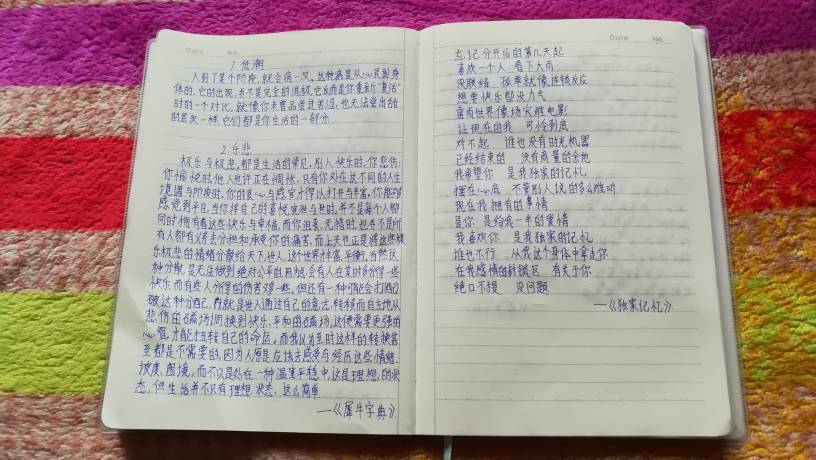 Date No.
1.低潮
人到了某个阶段,就会病一次。这种病是从心灵到身
体的,它的出现,并不是完全的消极,它反而是你重新"复活"
时的一个对比。就像你未曾品尝过苦涩,也无法尝出甜
的层次一样,它们都是你生活的一部分。
2.乐悲
极乐与极悲,都是生活的常见,别人快乐时,你悲伤;
你愉悦时,他人也许正在惆怅。只有你处在这不同的人生
境遇与阶段时,你的良心与感官才得以打开与丰富。你能够
感觉到平日,当你将自己的喜悦宣泄与世时,并不是每个人都
同时拥有着这些快乐与幸福,而你沮丧、无措时,也并不是所
有人都有义务去分担和承受你的痛苦,而上天也正是将这些极
乐极悲的情绪分散给天下世人,这个世界才丰富、平衡。当然这
种分散是无法做到绝对公平的,因为总会有人在某时多分得一些
快乐,而有些人分得的伤苦多一些。但还有一种可能会打
破这种分配,就是世人通过自己的意志,转移而自主地从
悲伤的磁场调换到快乐、平和的磁场,这便需要更强的
心智,才能扭转自己的命运。而我以为至时这样的转换甚
至都是不需要的,因为人原是应该去感受与经历这些情绪、
坡度、困境,而不只是处在一种温室平稳中,这是理想的状
态,但生活并不只有理想状态、这么简单
——《犀牛字典》
Date No.
忘记分开后的第几天起
喜欢一个人 看下大雨
没联络 孤单就像连锁反应
想要快乐都没力气
雷雨世界像场灾难电影
让现在的我 可怜到底
对不起 谁也没有时光机器
已经结束的 没有商量的余地
我希望你 是我独家的记忆
摆在心底 不管别人说的多么难听
现在我拥有的事情
是你 是给我一半的爱情
我喜欢你 是我独家的记忆
谁也不行 从我这个身体中拿走你
在我感情的封锁区 有关于你
绝口不提 没问题
——《独家记忆》